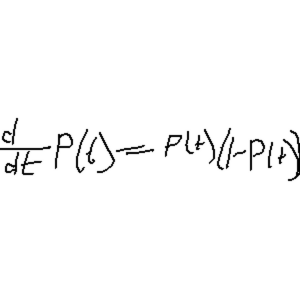 d/dt P(t) = P(t)(1-P(t))